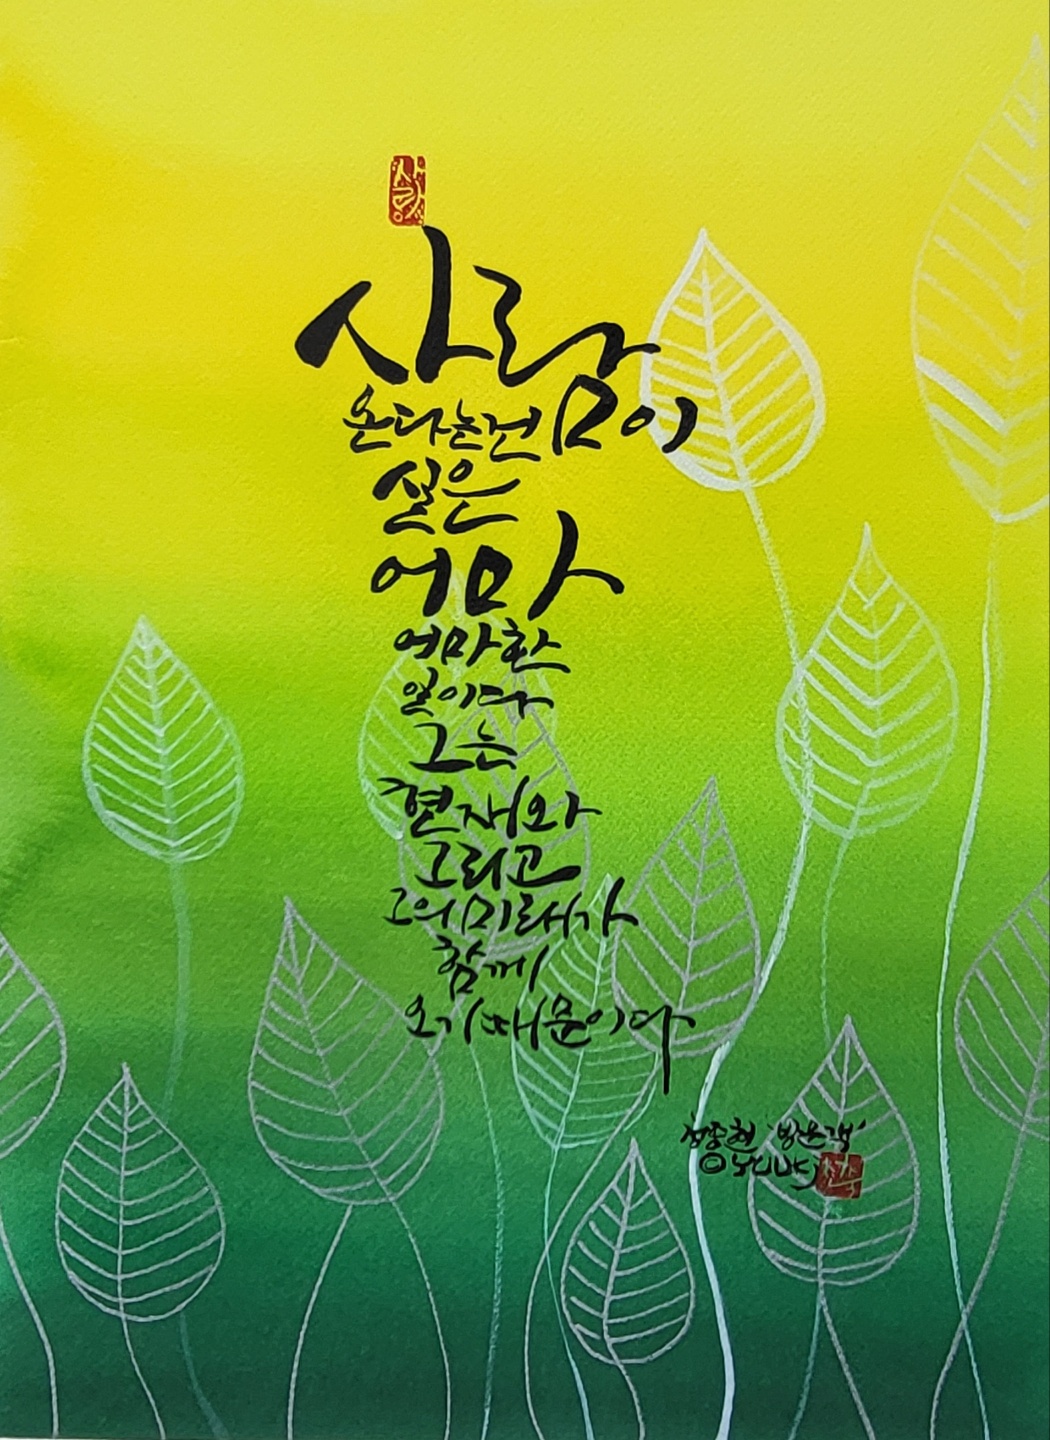 사랑
사람이
온다는건
실은
어마
어마한
일이다
그는
현재와
그리고
그의 미래가
함께
오기 때문이다
정종현 '방문객'